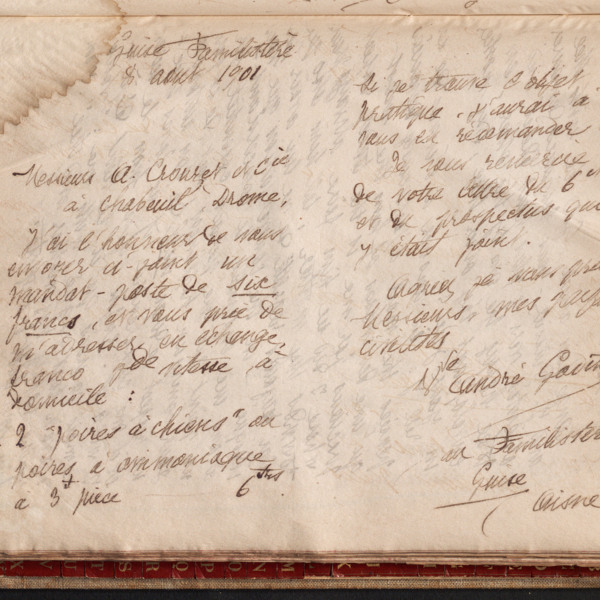 Guise Familistère
8 août 1901
Messieurs A. Crouzet et Cie
à Chabeuil Drome,
J'ai l'honneur de vous
envoyer ci-joint un
mandat-poste de six
francs, et vous prie de
m'adresser, en échange,
franco gde vitesse à
domicile :
2 "poires à chiens" ou
poires à ammoniaque
à 3f pièce 6 frs
si je trouve l'objet
pratique, j'aurai à
vous en recommander
Je vous remercie
de votre lettre du 6
et du prospectus qui
y était joint.
Agréez je vous prie
Messieurs, mes
civilités
Vve André Godin
au Familistère
Guise
Aisne